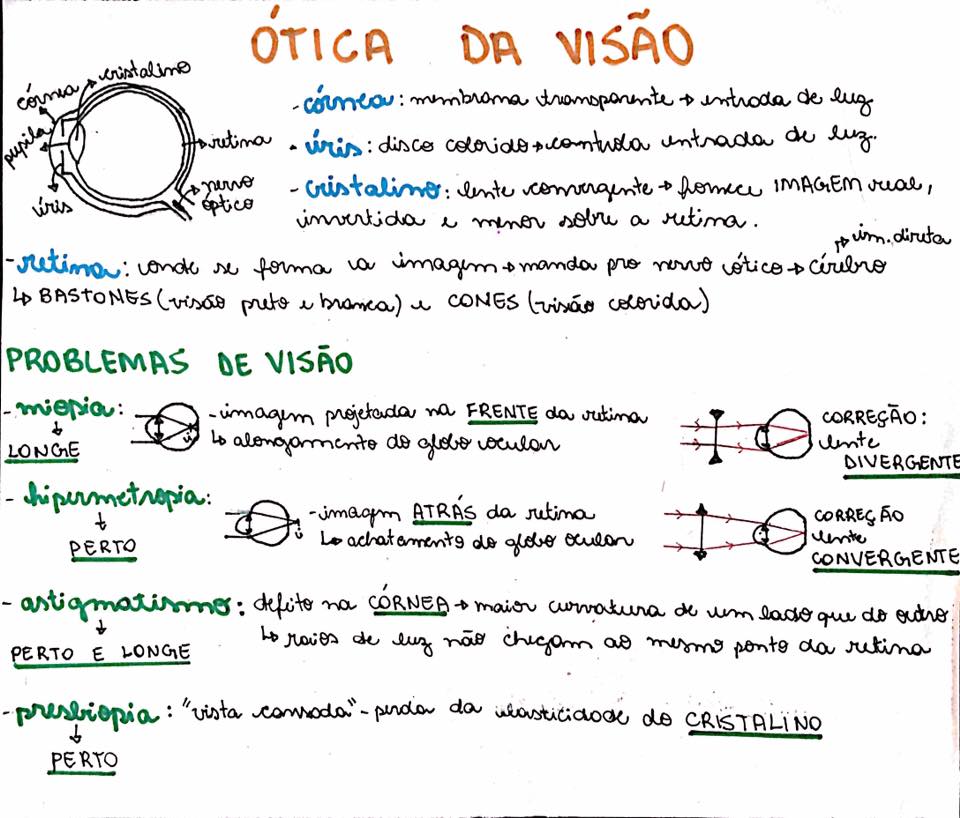 ÓTICA DA VISÃO
córnea
cristalino
pupila
retina
íris
nervo
óptico
- córnea: membrana transparente → entrada de luz
- íris: disco colorido → controla entrada de luz.
- cristalino: lente convergente → fornece IMAGEM real,
invertida e menor sobre a retina.
↳ im. direta
- retina: onde se forma a imagem → manda pro nervo ótico → cérebro
↳ BASTONES (visão preto e branca) e CONES (visão colorida)
PROBLEMAS DE VISÃO
- miopia:
LONGE
i
- imagem projetada na FRENTE da retina
↳ alongamento do globo ocular
CORREÇÃO:
lente
DIVERGENTE
- hipermetropia:
PERTO
i
- imagem ATRÁS da retina
↳ achatamento do globo ocular
CORREÇÃO
lente
CONVERGENTE
- astigmatismo: defeito na CÓRNEA → maior curvatura de um lado que do outro.
PERTO E LONGE
↳ raios de luz não chegam ao mesmo ponto da retina
- presbiopia: "vista cansada" - perda da elasticidade do CRISTALINO
PERTO